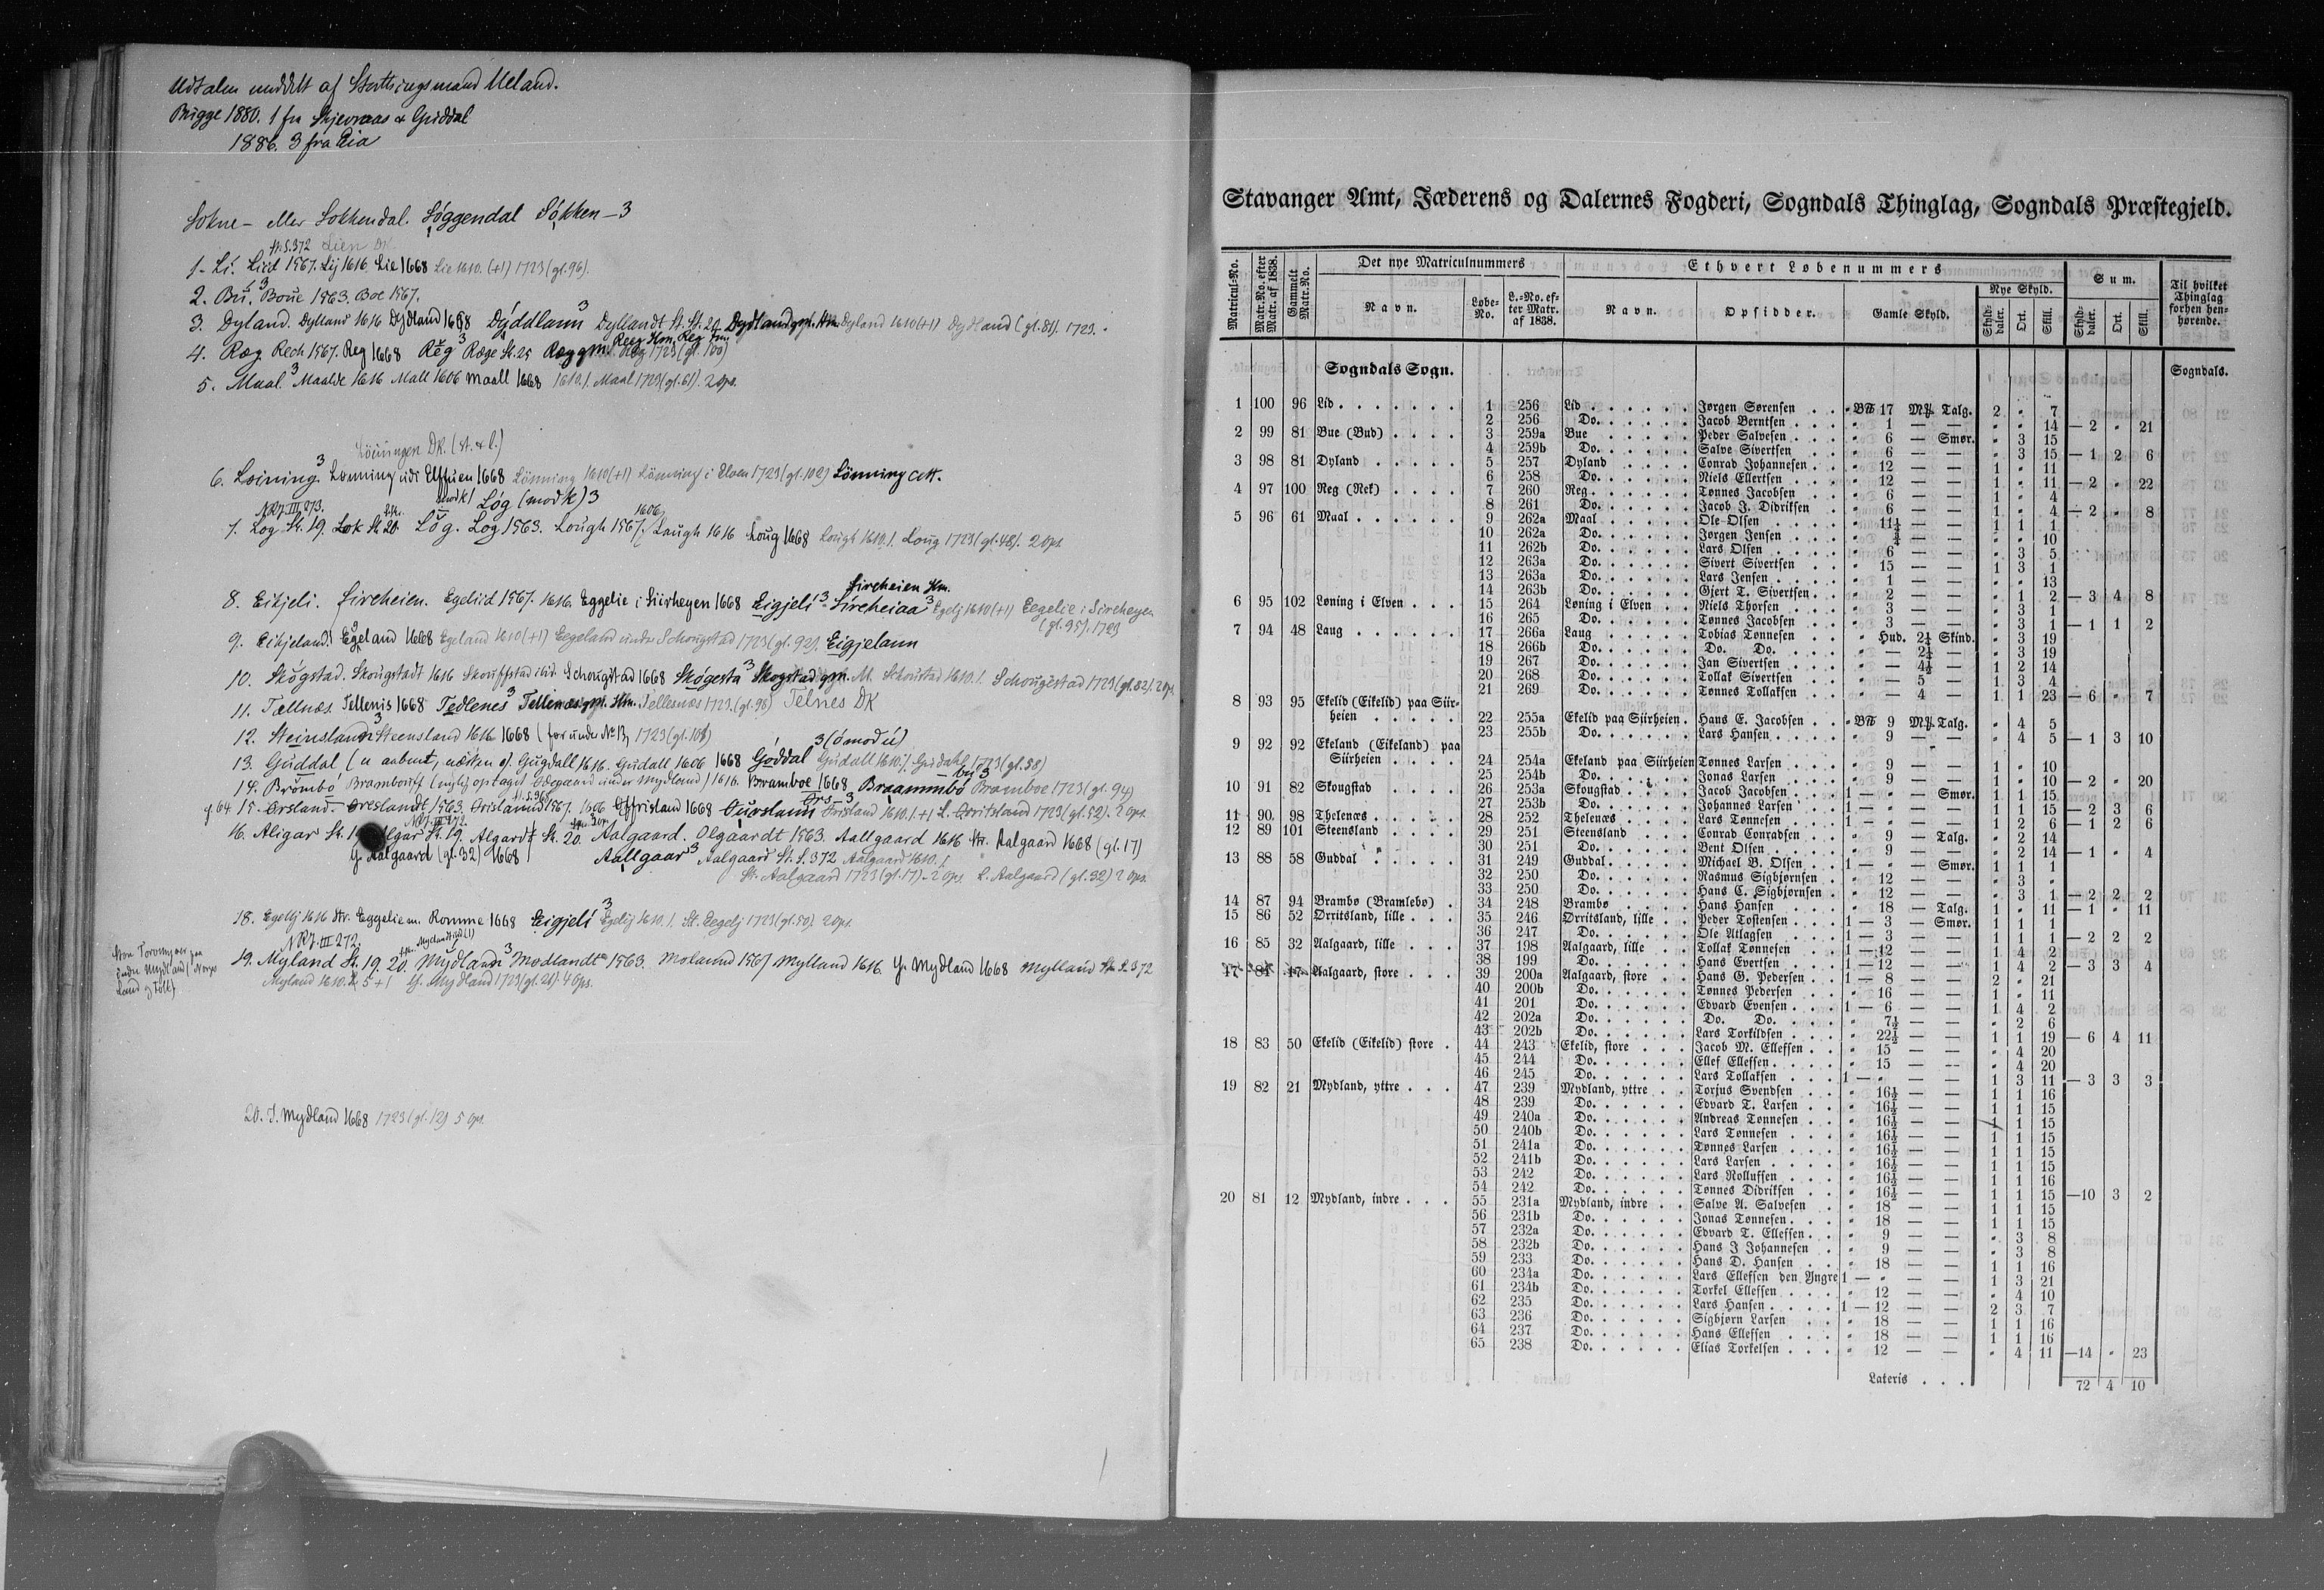 Udtalen meddelt af Storthingsmand Ueland.
Bugge 1880. 1 fra Skjevraas & Guddal
1886. 3 fra Eia
Sokne- eller Sokkendal. Søggendal Søkken-3
St. S. 372 Lien DK
1. Lí. Liid 1567. Lij 1616 Lie 1668 Lie 1610. (+1) 1723 (gl. 96).
2. Bú. 3 Boue 1563. Boe 1567.
3. Dyland. Dylland 1616 Dydland 1668 Dýddlann 3 Dyllandt St. St. 20 Dydland Dyland 1610 (+1) Dydland (gl. 81). 1723.
4. Ræg. Rech 1567. Reg 1668 Rĕg 3 Ræge St. 25 Ræg gm. Reg 1723 (gl. 100)
5. Maal. 3 Maalde 1616 Mall 1606 Maall 1668 1610. 1. Maal 1723 (gl. 61). 2 Ops.
Löiningen DK. (st. & l.)
6. Loining. 3 Lonning udi Elffuen 1668 Lönning 1610 (+1) Lönning i Elven 1723 (gl. 102) Lönning
NRJ. III 273. Løg (mod k) 3
7. Log St. 19. Lok St. 20. Lŏg. Log 1563. Lough 1567. 1606 Laugh 1616 Loug 1668 Lough 1610. 1. Loug 1723 (gl. 48). 2 Ops.
Sircheien Hm.
8. Eikjeli. Sircheien. Egeliid 1567. 1616. Eggelie i Siirheyen 1668 Eigjelí 3 Sircheiaa 3 Egelj 1610 (+1) Eegelie i Sireheyen
(gl. 95). 1723
9. Eikjeland. 3 Egeland 1668 Egeland 1610 (+1) Eegeland under Schougstad 1723 (gl. 92). Eigjelann
10. Skŏgstad. Skougstadt 1616 Skouffstad ibid. Schougstad 1668 Skŏgesta 3 Skogstad gm. M. Skoustad 1610. 1. Schougstad 1723 (gl. 82). 2 Ops.
11. Tællnæs. Tellenis 1668 Tedlenes 3 Tellenæs Hm. Tellesnæs 1723. (gl. 98) Telnes DK
12. Steinsland 3 Steensland 1616 1668 (før under No 13) 1723 (gl. 101)
3 (ó mod ú)
13. Guddal (u aabent, næsten o). Gugdall 1616. Gudall 1606 1668 Góddal Gudall 1610. 1. Gudahl 1723 (gl. 58)
14. Brŏmbó Brambouff (nylig optaget Ødegaard under Mydland) 1616. Bramboe 1668 Braammbó 3 Bramboe 1723 (gl. 94)
15. Orsland. Oreslandt 1563. Orislannd 1567. 1606 Offrisland 1668 Orsland 1610. 1+1 L. Orritsland 1723 (gl. 52). 2 Ops.
NRJ. III 272.
16. Aligar St. 19 Algar St. 19. Algardt St. 20. Aalgaard. Olgaardt 1563. Aallgaard 1616 Str. Aalgaard 1668 (gl. 17)
Y. Aalgaard (gl. 32) 1668 Aallgaar 3 Aalgaard St. S. 372 Aalgaard 1610. 1.
St. Aalgaard 1723 (gl. 17). 2 Ops. L. Aalgaard (gl. 32) 2 Ops.
18. Egellj 1616 Str. Eggelie m. Romme 1668 Eigjelí 3 Egelij 1610. 1. St. Eegelj 1723 (gl. 50). 2 Ops.
NRJ. III 272.
19. Myland St. 19. 20. Mydlann 3 Modlandt 1563. Molannd 1567 Mylland 1616. Y. Mydland 1668 Mylland St. S. 372
Myland 1610. 5+1 Y. Mydland 1723 (gl. 21). 4 Ops.
20. I. Mydland 1668 1723 (gl. 12) 5 Ops.
Stavanger Amt, Jæderens og Dalernes Fogderi, Sogndals Thinglag, Sogndals Præstegjeld.
Matricul-No. Matr.-No. efter Matr. af 1838. Gammelt Matr. No. Det nye Matriculnummers Ethvert Løbenummers Sum. Til hvilket Thinglag forhen henhørende.
Navn. Løbe-No. L.-No. efter Matr. af 1838. Navn. Opsidder. Gamle Skyld. Nye Skyld. Skylddaler. Ort. Skill. Skylddaler. Ort. Skill.
Sogndals Sogn. Sogndals.
1 100 96 Lid 1 256 Lid Jørgen Sørensen " Bpd 17 Mk. Talg. 2 " 7
2 256 Do. Jacob Berntsen " 1 — — " " 14 — 2 " 21
2 99 81 Bue (Bud) 3 259a Bue Peder Salvesen " 6 — Smør. " 3 15
4 259b Do. Salve Sivertsen " 6 — — " 3 15 — 1 2 6
3 98 81 Dyland 5 257 Dyland Conrad Johannesen " 12 — — 1 " 11
6 258 Do. Niels Ellertsen " 12 — — 1 " 11 — 2 " 22
4 97 100 Reg (Rek) 7 260 Reg Tønnes Jacobsen " 6 — — 1 " 4
8 261 Do. Jacob J. Didriksen " 6 — — 1 " 4 — 2 " 8
5 96 61 Maal 9 262a Maal Ole Olsen " 11¼ — — 1 1 1
10 262a Do. Jørgen Jensen " ¾ — — " " 10
11 262b Do. Lars Olsen " 6 — — " 3 5
12 263a Do. Sivert Sivertsen " 15 — — 1 3 1
13 263a Do. Lars Jensen " 1 — — " " 13
14 263b Do. Gjert T. Sivertsen " 2 — — " 1 2 — 3 4 8
6 95 102 Løning i Elven 15 264 Løning i Elven Niels Thorsen " 3 — — " 3 1
16 265 Do. Tønnes Jacobsen " 3 — — " 3 1 — 1 1 2
7 94 48 Laug 17 266a Laug Tobias Tønnesen " Hud. 2¼ Skind. " 3 19
18 266b Do. Do. Do. " — 2¼ — " 3 19
19 267 Do. Jan Sivertsen " — 4½ — 1 2 14
20 268 Do. Tollak Sivertsen " — 5 — 1 3 4
21 269 Do. Tønnes Tollaksen " — 4 — 1 1 23 — 6 " 7
8 93 95 Ekelid (Eikelid) paa Siirheien 22 255a Ekelid paa Siirheien Hans E. Jacobsen " Bpd 9 Mk. Talg. " 4 5
23 255b Do. Lars Hansen " 9 — — " 4 5 — 1 3 10
9 92 92 Ekeland (Eikeland) paa Siirheien 24 254a Ekeland paa Siirheien Tønnes Larsen " 9 — — 1 " 10
25 254b Do. Jonas Larsen " 9 — — 1 " 10 — 2 " 20
10 91 82 Skougstad 26 253a Skougstad Jacob Jacobsen 1 — " — Smør. 1 1 15
27 253b Do. Johannes Larsen 1 — " — — 1 1 15 — 2 3 6
11 90 98 Thelenæs 28 252 Thelenæs Lars Tønnesen 1 — " — — 1 2 6 — 1 2 6
12 89 101 Steensland 29 251 Steensland Conrad Conradsen " 9 — Talg. " 2 14
30 251 Do. Bent Olsen " 9 — — " 2 14 — 1 " 4
13 88 58 Guddal 31 249 Guddal Michael B. Olsen 1 — " — Smør. 1 1 1
32 250 Do. Rasmus Sigbjørnsen " 12 — — " 3 "
33 250 Do. Hans C. Sigbjørnsen " 12 — — " 3 1 — 2 2 2
14 87 94 Brambø (Bramlebø) 34 248 Brambø Hans Hansen " 18 — Talg. 1 " 11 — 1 " 11
15 86 52 Orritsland, lille 35 246 Orritsland, lille Peder Tostensen 1 — 3 — Smør. 1 1 1
36 247 Do. Ole Atlagsen 1 — 3 — — 1 1 1 — 2 2 2
16 85 32 Aalgaard, lille 37 198 Aalgaard, lille Tollak Tønnesen 1 — 12 — — 1 4 2
38 199 Do. Hans Evertsen 1 — 12 — — 1 4 2 — 3 3 4
17 84 17 Aalgaard, store 39 200a Aalgaard, store Hans G. Pedersen 1 — 8 — — 2 " 21
40 200b Do. Tønnes Pedersen " 16 — — 1 " 11
41 201 Do. Edvard Evensen 1 — 6 — — 1 4 2
42 202a Do. Do. Do. " 7½ — — " 2 6
43 202b Do. Lars Torkildsen " 22½ — — 1 1 19 — 6 4 11
18 83 50 Ekelid (Eikelid) store 44 243 Ekelid, store Jacob M. Ellefsen " 15 — — " 4 20
45 244 Do. Ellef Ellefsen " 15 — — " 4 20
46 245 Do. Lars Tollaksen 1 — " — — 1 3 11 — 3 3 3
19 82 21 Mydland, yttre 47 239 Mydland, yttre Torjus Svendsen " 16½ — — 1 1 16
48 239 Do. Edvard T. Larsen " 16½ — — 1 1 15
49 240a Do. Andreas Tønnesen " 16½ — — 1 1 15
50 240b Do. Lars Tønnesen " 16½ — — 1 1 15
51 241a Do. Tønnes Larsen " 16½ — — 1 1 15
52 241b Do. Lars Larsen " 16½ — — 1 1 15
53 242 Do. Lars Rollufsen " 16½ — — 1 1 16
54 242 Do. Tønnes Didriksen " 16½ — — 1 1 15 — 10 3 2
20 81 12 Mydland, indre 55 231a Mydland, indre Salve A. Salvesen " 18 — — 1 1 15
56 231b Do. Jonas Tønnesen " 18 — — 1 1 15
57 232a Do. Edvard T. Ellefsen " 9 — — " 3 8
58 232b Do. Hans J Johannesen " 9 — — " 3 8
59 233 Do. Hans D. Hansen " 18 — — 1 1 16
60 234a Do. Lars Ellefsen den Yngre 1 — " — — 1 3 21
61 234b Do. Torkel Ellefsen " 12 — — " 4 10
62 235 Do. Lars Hansen 1 — 12 — — 2 3 7
63 236 Do. Sigbjørn Larsen " 18 — — 1 1 16
64 237 Do. Hans Ellefsen " 18 — — 1 1 16
65 238 Do. Elias Torkelsen " 12 — — " 4 11 — 14 " 23
Lateris 72 4 10